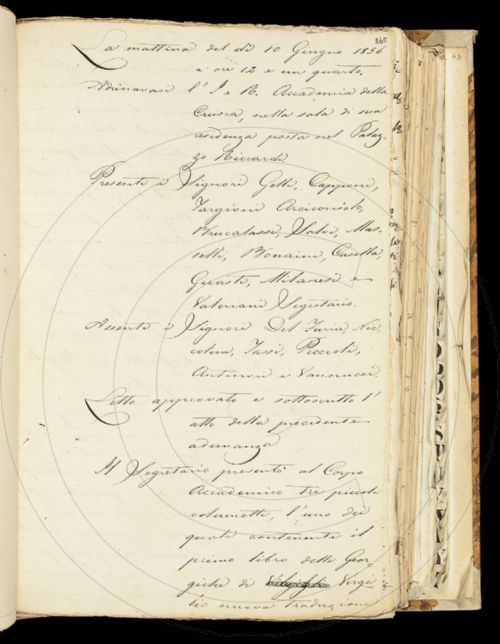 La mattina del dì 10 Giugno 1856
a ore 12 e un quarto,
Adunavasi l'I e R. Accademia della
Crusca, nella sala di sua
residenza posta nel Palaz-
zo Riccardi
Presenti i Signori Gelli, Capponi,
Targioni Arciconsolo,
Brucalassi, Salvi, Mas-
selli, Bonaini, Casella,
Guasti, Milanesi e
Valeriani Segretario.
Assenti i Signori Del Furia, Nic-
colini, Tassi, Piccioli,
Antinori e Vannucci.
Letto approvato e sottoscritto l'
atto della precedente
adunanza
Il Segretario presentò al Corpo
Accademico tre piccoli
volumetti, l'uno dei
quali contenente il
primo libro delle Geor-
giche di Virgi-
lio nuova traduzione